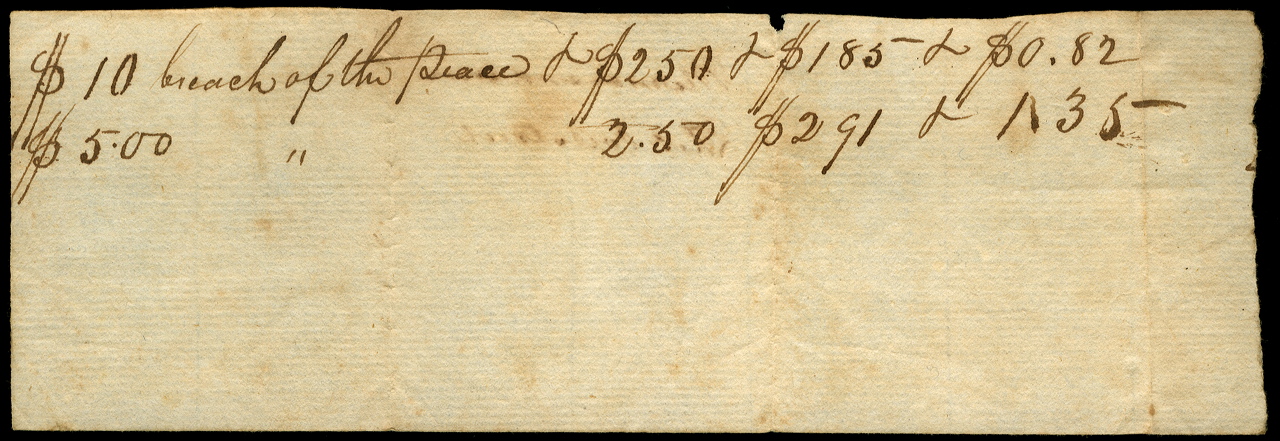 $10 breach of the peace & $250 & $185 & $0.82
$5.00 " 2.50 $291 & 135